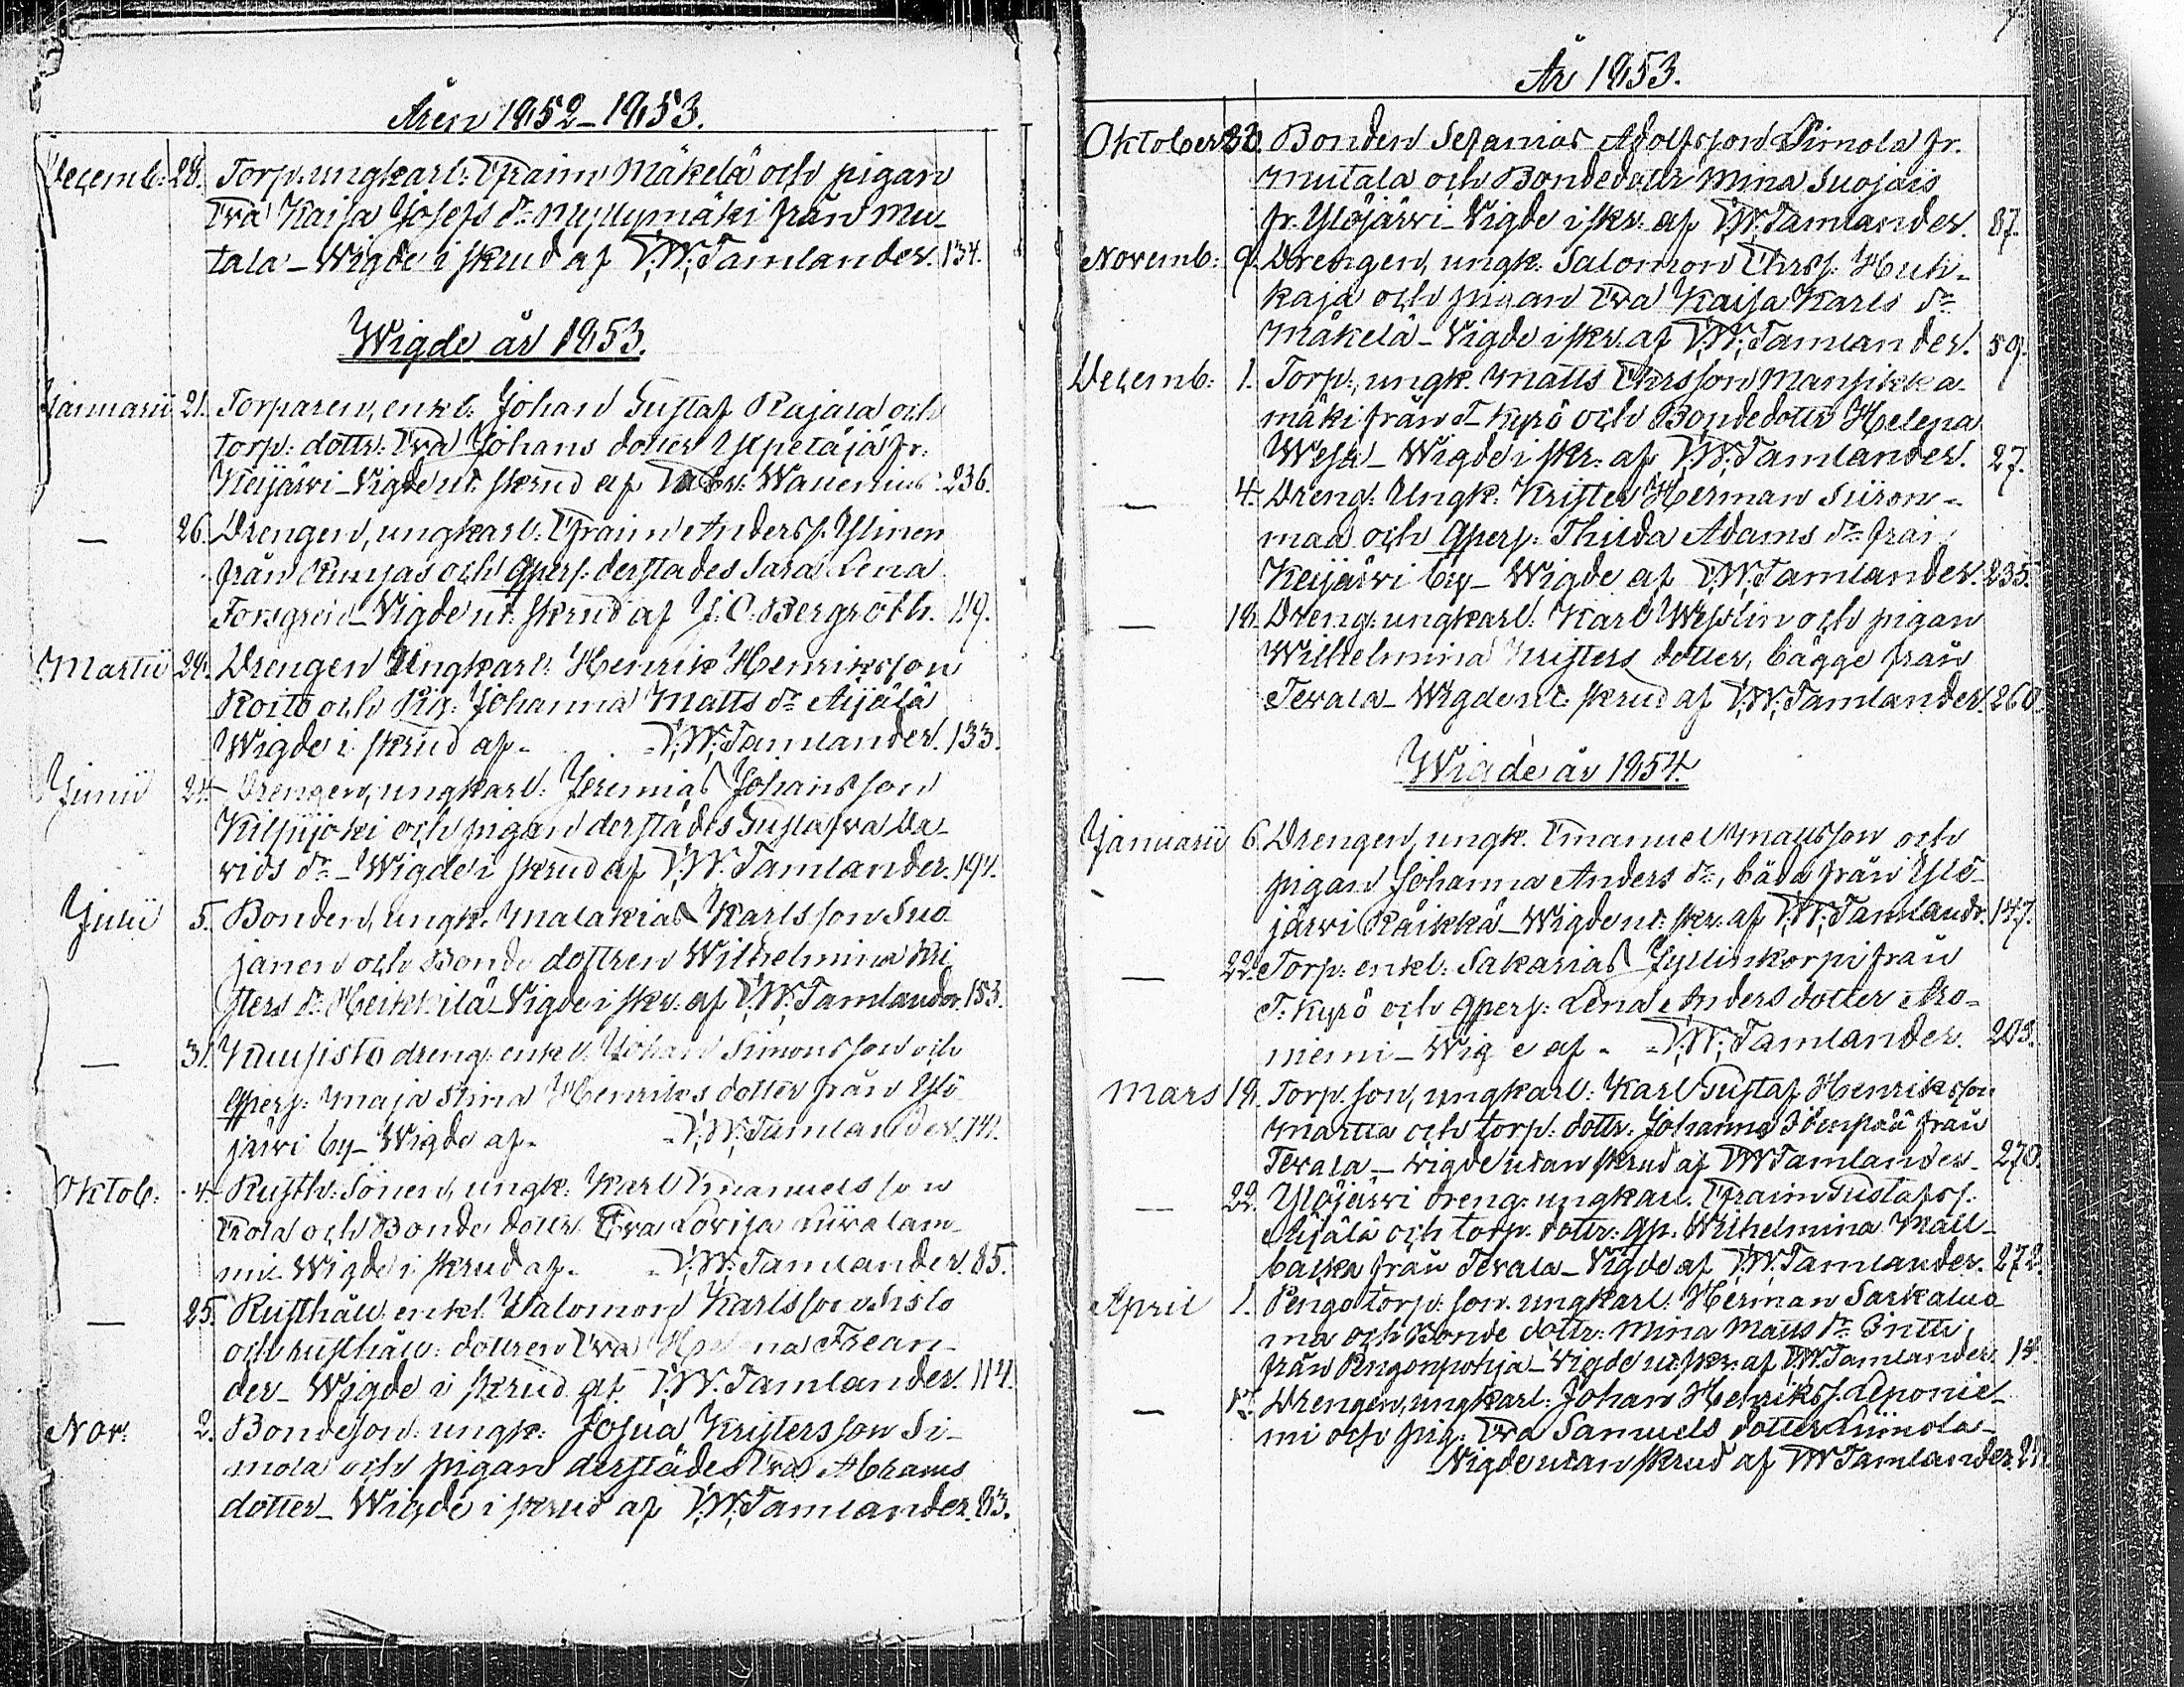 Åren 1852-1853.
Decemb: 28. Torp. ungkarl: Efraim Mäkelä och pigan
Eva Kaisa Josefs dr Myllymäki från Mu-
tala - Wigde i skrud af F.W. Tamlander. 134.
Wigde år 1853.
Januarii 21. Torparen, enkl: Johan Gustaf Rajala och
torp: dottr. Eva Johans dotter Ylpetäjä fr.
Keijärvi - Vigde ut. skrud af 236.
— 26. Drengen, ungkarl: Efraim Anders s. Ylinen
från Runsas och qpers: derstädes Sara Lena
Forsgren - Vigde ut. skrud af J. C. Bergroth. 119.
Martii 28. Drengen Ungkarl: Henrik Henriksson
Roito och Pig: Johanna Matts dr Äijälä
Wigde i skrud af - - F.W. Tamlander. 133.
Junii 24. Drengen, ungkarl: Jeremias Johansson
Kiljujoki och pigan derstädes Gustafva Da-
vids dr - Wigde i skrud af F.W. Tamlander. 194.
Julii 5. Bonden, Ungk. Malakias Karlsson Suo
janen och Bonde dottren Wilhelmina Kri
sters dr Heikkilä - Vigde i skr. af F.W. Tamlander. 153.
— 31. Kuusisto dreng: enkl: Johan Simonsson och
qpers: Maja Stina Henriks dotter från Ylö
järvi by - Wigde af - - F.W. Tamlander. 142.
Oktob: 4. Rusth: Sonen, ungk: Karl Emanuelsson
Erola och Bonde dottr. Eva Lovisa Liivalam-
mi - Wigde i skrud af - - F.W. Tamlander. 85.
— 25. Rusthåll: enkl. Salomon Karlsson Sisto
och rusthåll: dottren Eva Helena Frean-
der - Wigde i skrud af F.W. Tamlander. 114.
Nov: 2. Bondeson: ungk: Josua Kristersson Si-
mola och pigan derstädes Eva Abrams
dotter - Wigde i skrud af F.W. Tamlander. 83.
År 1853.
Oktober 30. Bonden Sefanias Adolfsson Simola fr.
Mutala och Bondedottr Mina Suojais
fr. Ylöjärvi - Vigde i skr. af F.W. Tamlander. 87.
Novemb: 9. Drengen, ungk: Salomon Ehrss. Huh-
kaja och pigan Eva Kaisa Karls dr
Mäkelä - Vigde i skr. af F.W. Tamlander. 59.
Decemb: 1. Torp:, ungk. Matts Ehrsson Mansikka-
mäki från T. Kyrö och Bondedottr Helena
Wesa - Wigde i skr. af F.W. Tamlander. 27.
— 4. Dreng: Ungk: Krister Herman Siiron-
maa och qpers: Thilda Adams dr från
Keijärvi by - Wigde af F.W. Tamlander. 235.
— 18. Dreng: ungkarl: Karl Wesslin och pigan
Wilhelmina Kristers dotter, bägge från
Tevala - Wigde ut. skrud af F.W. Tamlander. 260.
Wigde år 1854.
Januarii 6. Drengen, ungk. Emanuel Mattsson och
pigan Johanna Anders dr, båda från Ylö-
järvi Räikkä - Wigde ut. skr. af F.W. Tamlandr. 147.
— 22. Torp: enkl: Sakarias Jyllinkorpi från
T. Kyrö och qpers: Lena Anders dotter Aro-
niemi - Wigde af - - F.W. Tamlander. 203.
Mars 18. Torp. son, ungkarl: Karl Gustaf Henriksson
Martta och torp. dottr: Johanna från
Tevala - vigde utan skrud af F.W. Tamlander. 270.
— 22. Ylöjärvi dreng: ungkarl. Efraim Gustafss.
Äijälä och torp. dottr: qp. Wilhelmina Mäll-
backa från Tevala - Vigde af F.W. Tamlander. 272.
April 1. Pengo torp: son. ungkarl: Herman Sarkaluo
ma och Bonde dottr: Mina Matts dr Britti
från Pengonpohja - Vigde ut. skr. af F.W. Tamlander. 14.
— Drengen, ungkarl: Johan Henrikss. Leponie-
mi och pig: Eva Samuels dotter Liimola -
Vigde utan skrud af F.W. Tamlander.